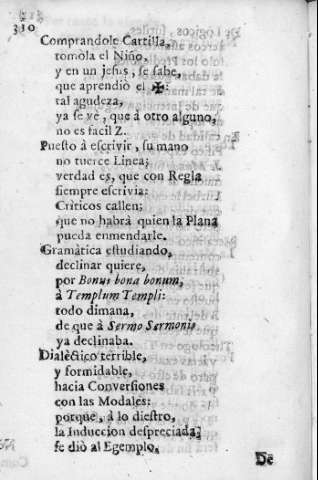 310
Comprandole Cartilla,
tomòla el Niño,
y en un jesus, se sabe,
que aprendió el ✠:
tal agudeza,
ya se vé, que à otro alguno,
no es facil Z.
Puesto à escrivir, su mano
no tuerce Linea;
verdad es, que con Regla
siempre escrivia:
Crìticos callen;
que no habrà quien la Plana
pueda enmendarle.
Gramàtica estudiando,
declinar quiere,
por Bonus bona bonum,
à Templum Templi:
todo dimana,
de que à Sermo Sermonis
ya declinaba.
Dialèctico terrible,
y formidable,
hacia Conversiones
con las Modales:
porque, à lo diestro,
la Induccion despreciada,
se diò al Egemplo.
De